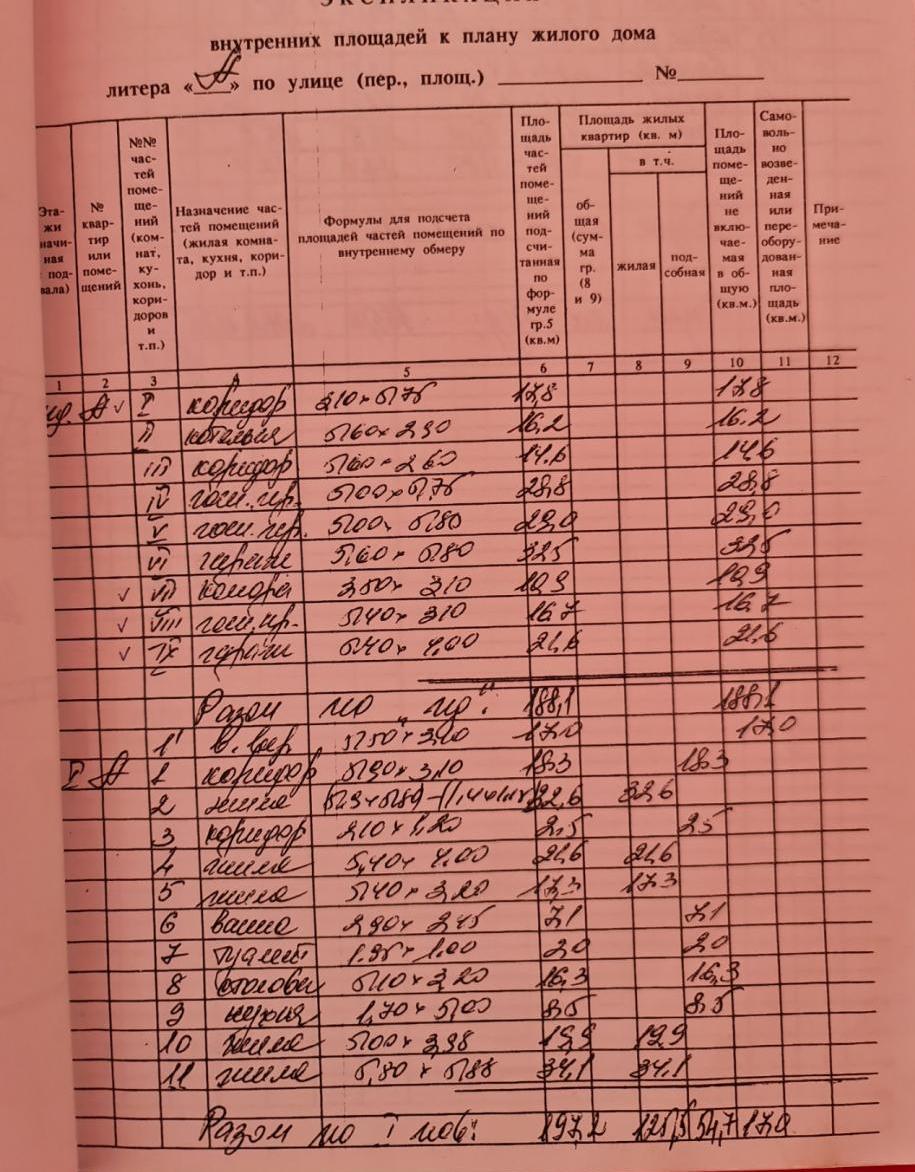 ЭКСПЛИКАЦИЯ
внутренних площадей к плану жилого дома
литера «А» по улице (пер., площ.) ____________ №________
Эта-
жи
начи-
ная
с под-
вала)
№
квар-
тир
или
поме-
щений
№№
час-
тей
поме-
ще-
ний
(ком-
нат,
ку-
хонь,
кори-
доров
и
т.п.)
Назначение час-
тей помещений
(жилая комна-
та, кухня, кори-
дор и т.п.)
Формулы для подсчета
площадей частей помещений по
внутреннему обмеру
Пло-
щадь
час-
тей
поме-
ще-
ний
под-
счи-
танная
по
фор-
муле
гр.5
(кв.м)
Площадь жилых
квартир (кв. м)
об-
щая
(сум-
ма
гр.
(8
и 9)
в т.ч.
жилая
под-
собная
Пло-
щадь
поме-
ще-
ний
не
вклю-
чае-
мая
в об-
щую
(кв.м.)
Само-
воль-
но
возве-
ден-
ная
или
пере-
обору-
дован-
ная
пло-
щадь
(кв.м.)
При-
меча-
ние
1 2 3 4 5 6 7 8 9 10 11 12
А ✓ I коридор 310×5,75 17,8 17,8
II котельня 5,60×2,90 16,2 16.2
III коридор 5,60×2,60 14,6 14,6
IV госп.пр. 5,00×5,75 28,8 28,8
V госп.пр. 5,00×5,80 29,0 29,0
VI гараж 5,60×5,80 32,5 32,5
✓ VII комора 3,50×3,10 10,9 10,9
✓ VIII госп.пр. 5,40×3,10 16,7 16,7
✓ IX гараж 5,40×4,00 21,6 21,6
Разом по пд. 188,1 188,1
1' в. вер 17,0 17,0
I А 1 коридор 5,90×3,10 18,3 18,3
2 жила 32,6 32,6
3 коридор 2,10×1,20 2,5 2,5
4 жила 5,40×4,00 21,6 21,6
5 жила 5,40×3,20 17,3 17,3
6 ванна 2,90×2,45 7,1 7,1
7 туалет 2,0 2,0
8 столова 5,10×3,20 16,3 16,3
9 кухня 1,70×5,00 8,5 8,5
10 жила 5,00×3,98 19,9 19,9
11 жила 5,80×5,88 34,1 34,1
Разом по I пов: 197,2 125,5 54,7 17,0